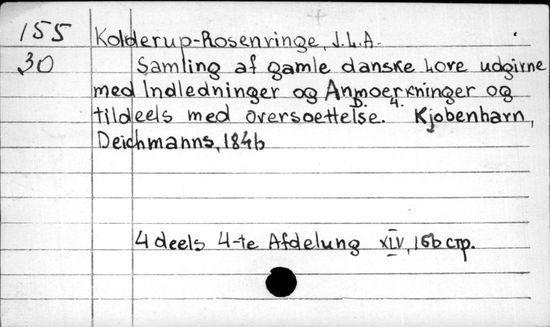 155 Kolderup-Rosenvinge, J.L.A.
30 Samling af gamle danske Love udgivne
med Indledninger og Anmoerkninger og
tildeels med oversoettelse. D. 4. Kjobenhavn,
Deichmanns, 1846
4 deels 4-te Afdelung XLV, 166 стр.